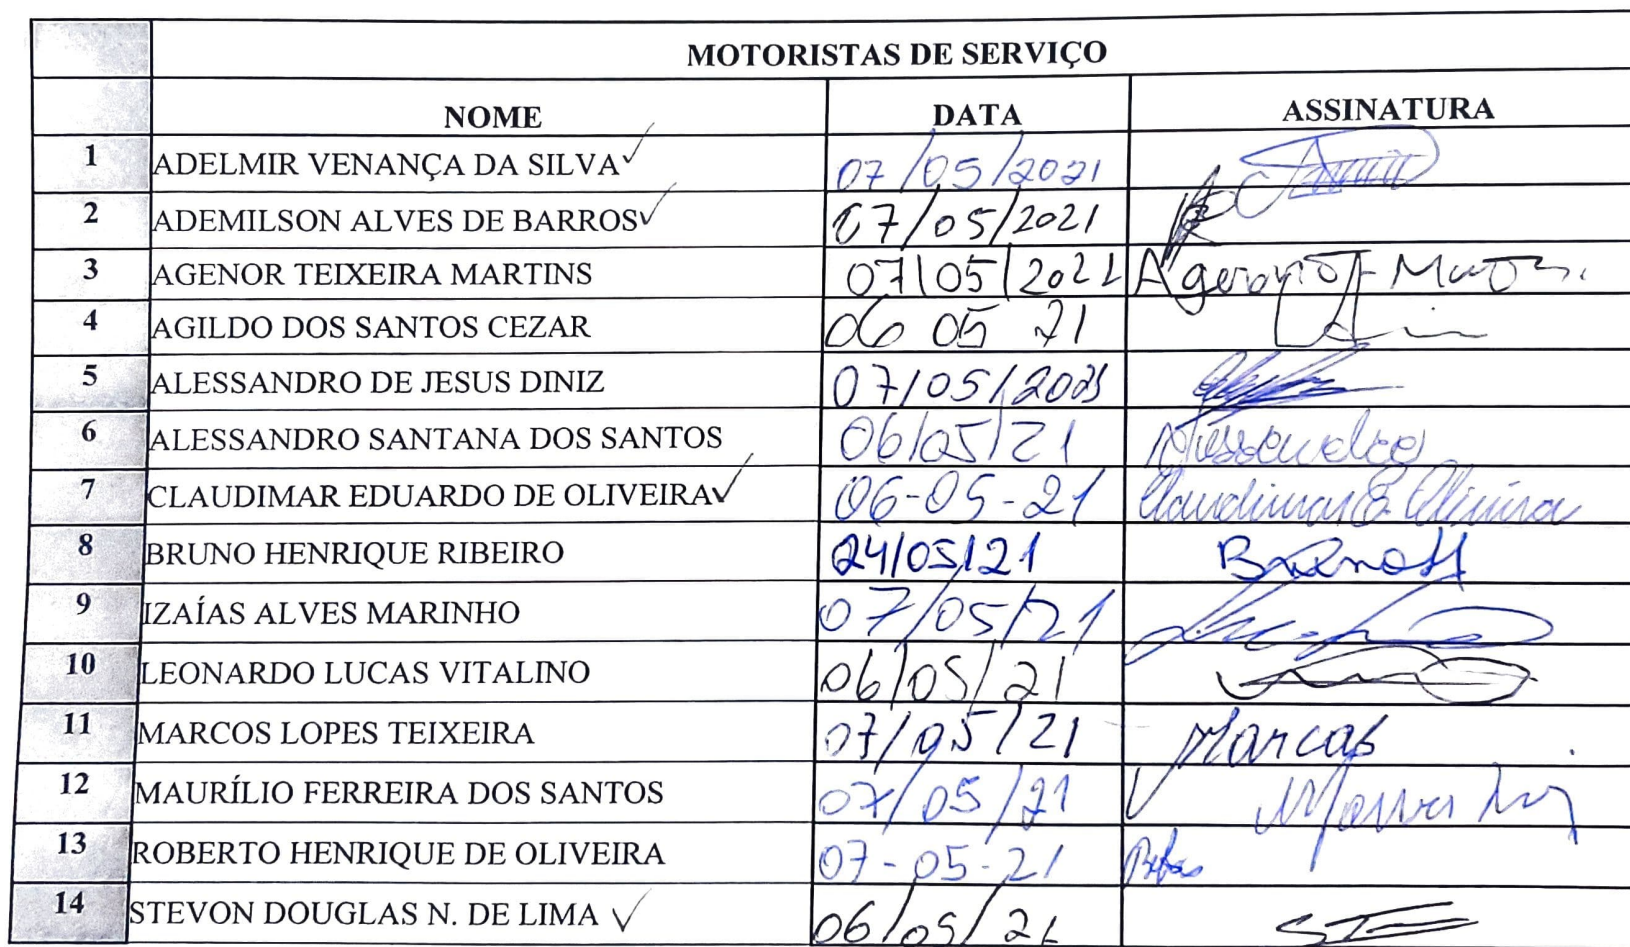 MOTORISTAS DE SERVIÇO
NOME DATA ASSINATURA
1 ADELMIR VENANÇA DA SILVA 07/05/2021
2 ADEMILSON ALVES DE BARROS 07/05/2021
3 AGENOR TEIXEIRA MARTINS 07/05/2021 Agenor T
4 AGILDO DOS SANTOS CEZAR 06 05 21
5 ALESSANDRO DE JESUS DINIZ 07/05/2021
6 ALESSANDRO SANTANA DOS SANTOS 06/05/21 Alessandro
7 CLAUDIMAR EDUARDO DE OLIVEIRA 06-05-21 Claudimar E. Oliveira
8 BRUNO HENRIQUE RIBEIRO 24/05/21 Bruno H
9 IZAÍAS ALVES MARINHO 07/05/21
10 LEONARDO LUCAS VITALINO 06/05/21
11 MARCOS LOPES TEIXEIRA 07/05/21 Marcos
12 MAURÍLIO FERREIRA DOS SANTOS 07/05/21
13 ROBERTO HENRIQUE DE OLIVEIRA 07-05-21
14 STEVON DOUGLAS N. DE LIMA 06/05/21